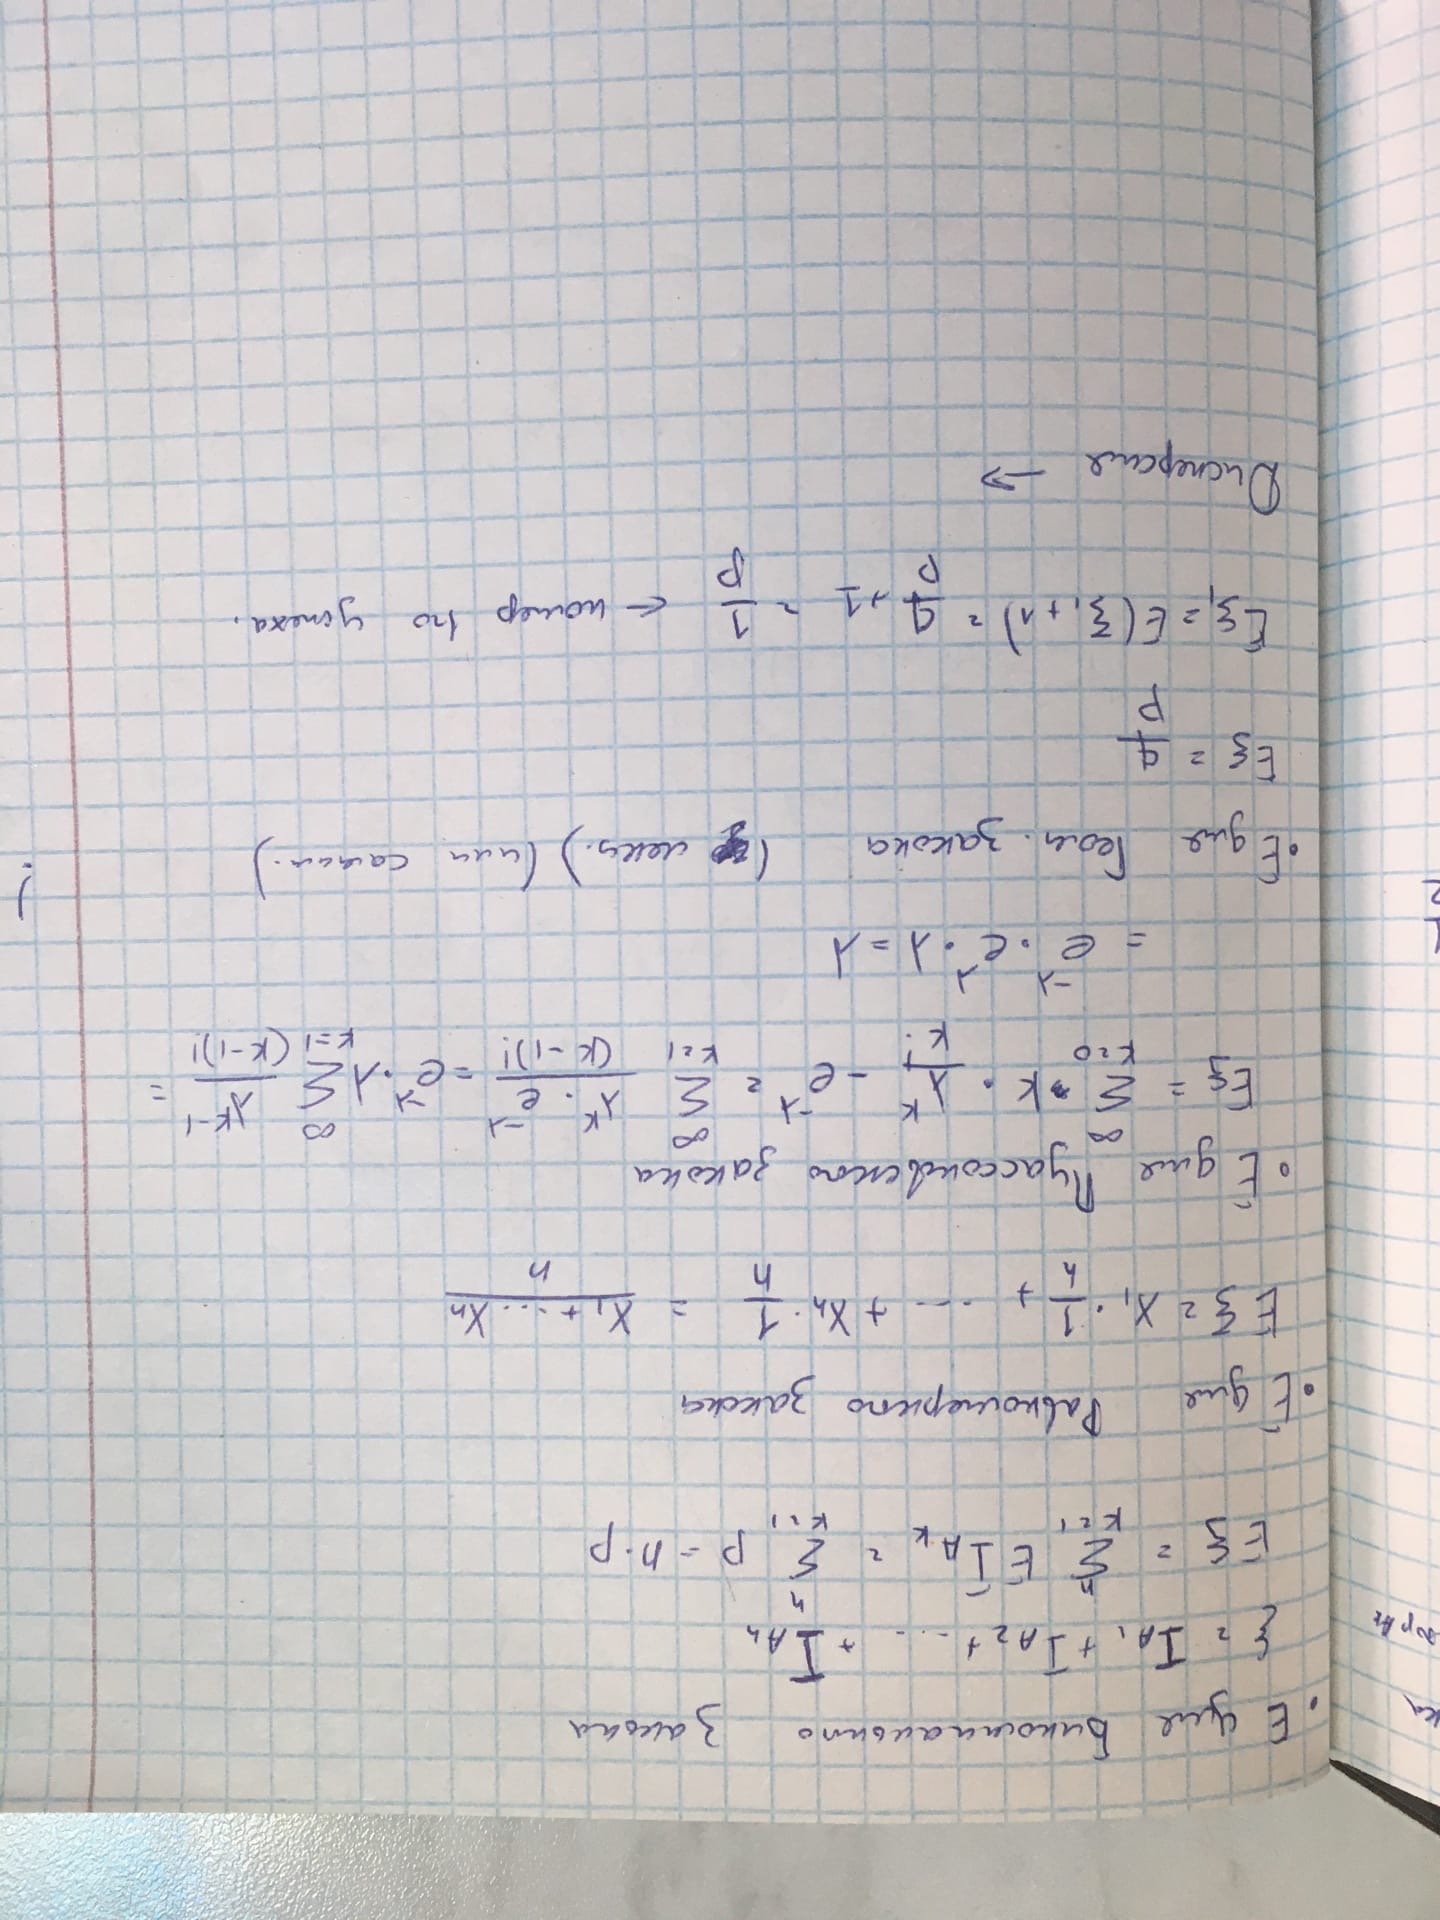 ка
1
2
• E для Биномиального закона
ξ = I_{A_1} + I_{A_2} + ... + I_{A_n}
Eξ = Σ_{k=1}^{n} E I_{A_k} = Σ_{k=1}^{n} p = n·p
• E для Равномерного закона
Eξ = x_1 · 1/n + ... + x_n · 1/n = (x_1 + ... x_n)/n
• E для Пуассоновского закона
Eξ = Σ_{k=0}^{∞} k · λ^k/k! - e^{-λ} = Σ_{k=1}^{∞} (λ^k · e^{-λ})/(k-1)! = e^{-λ} · λ Σ_{k=1}^{∞} λ^{k-1}/(k-1)! =
= e^{-λ} · e^{λ} · λ = λ
• E для Геом. закона ( лекц.) (или самим.) !
Eξ = q/p
Eξ_1 = E(ξ_1 + 1) = q/p + 1 = 1/p ← номер 1го успеха.
Дисперсия →